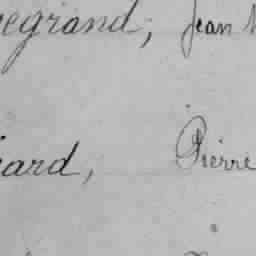 egrand, Jean
ard, Pierre